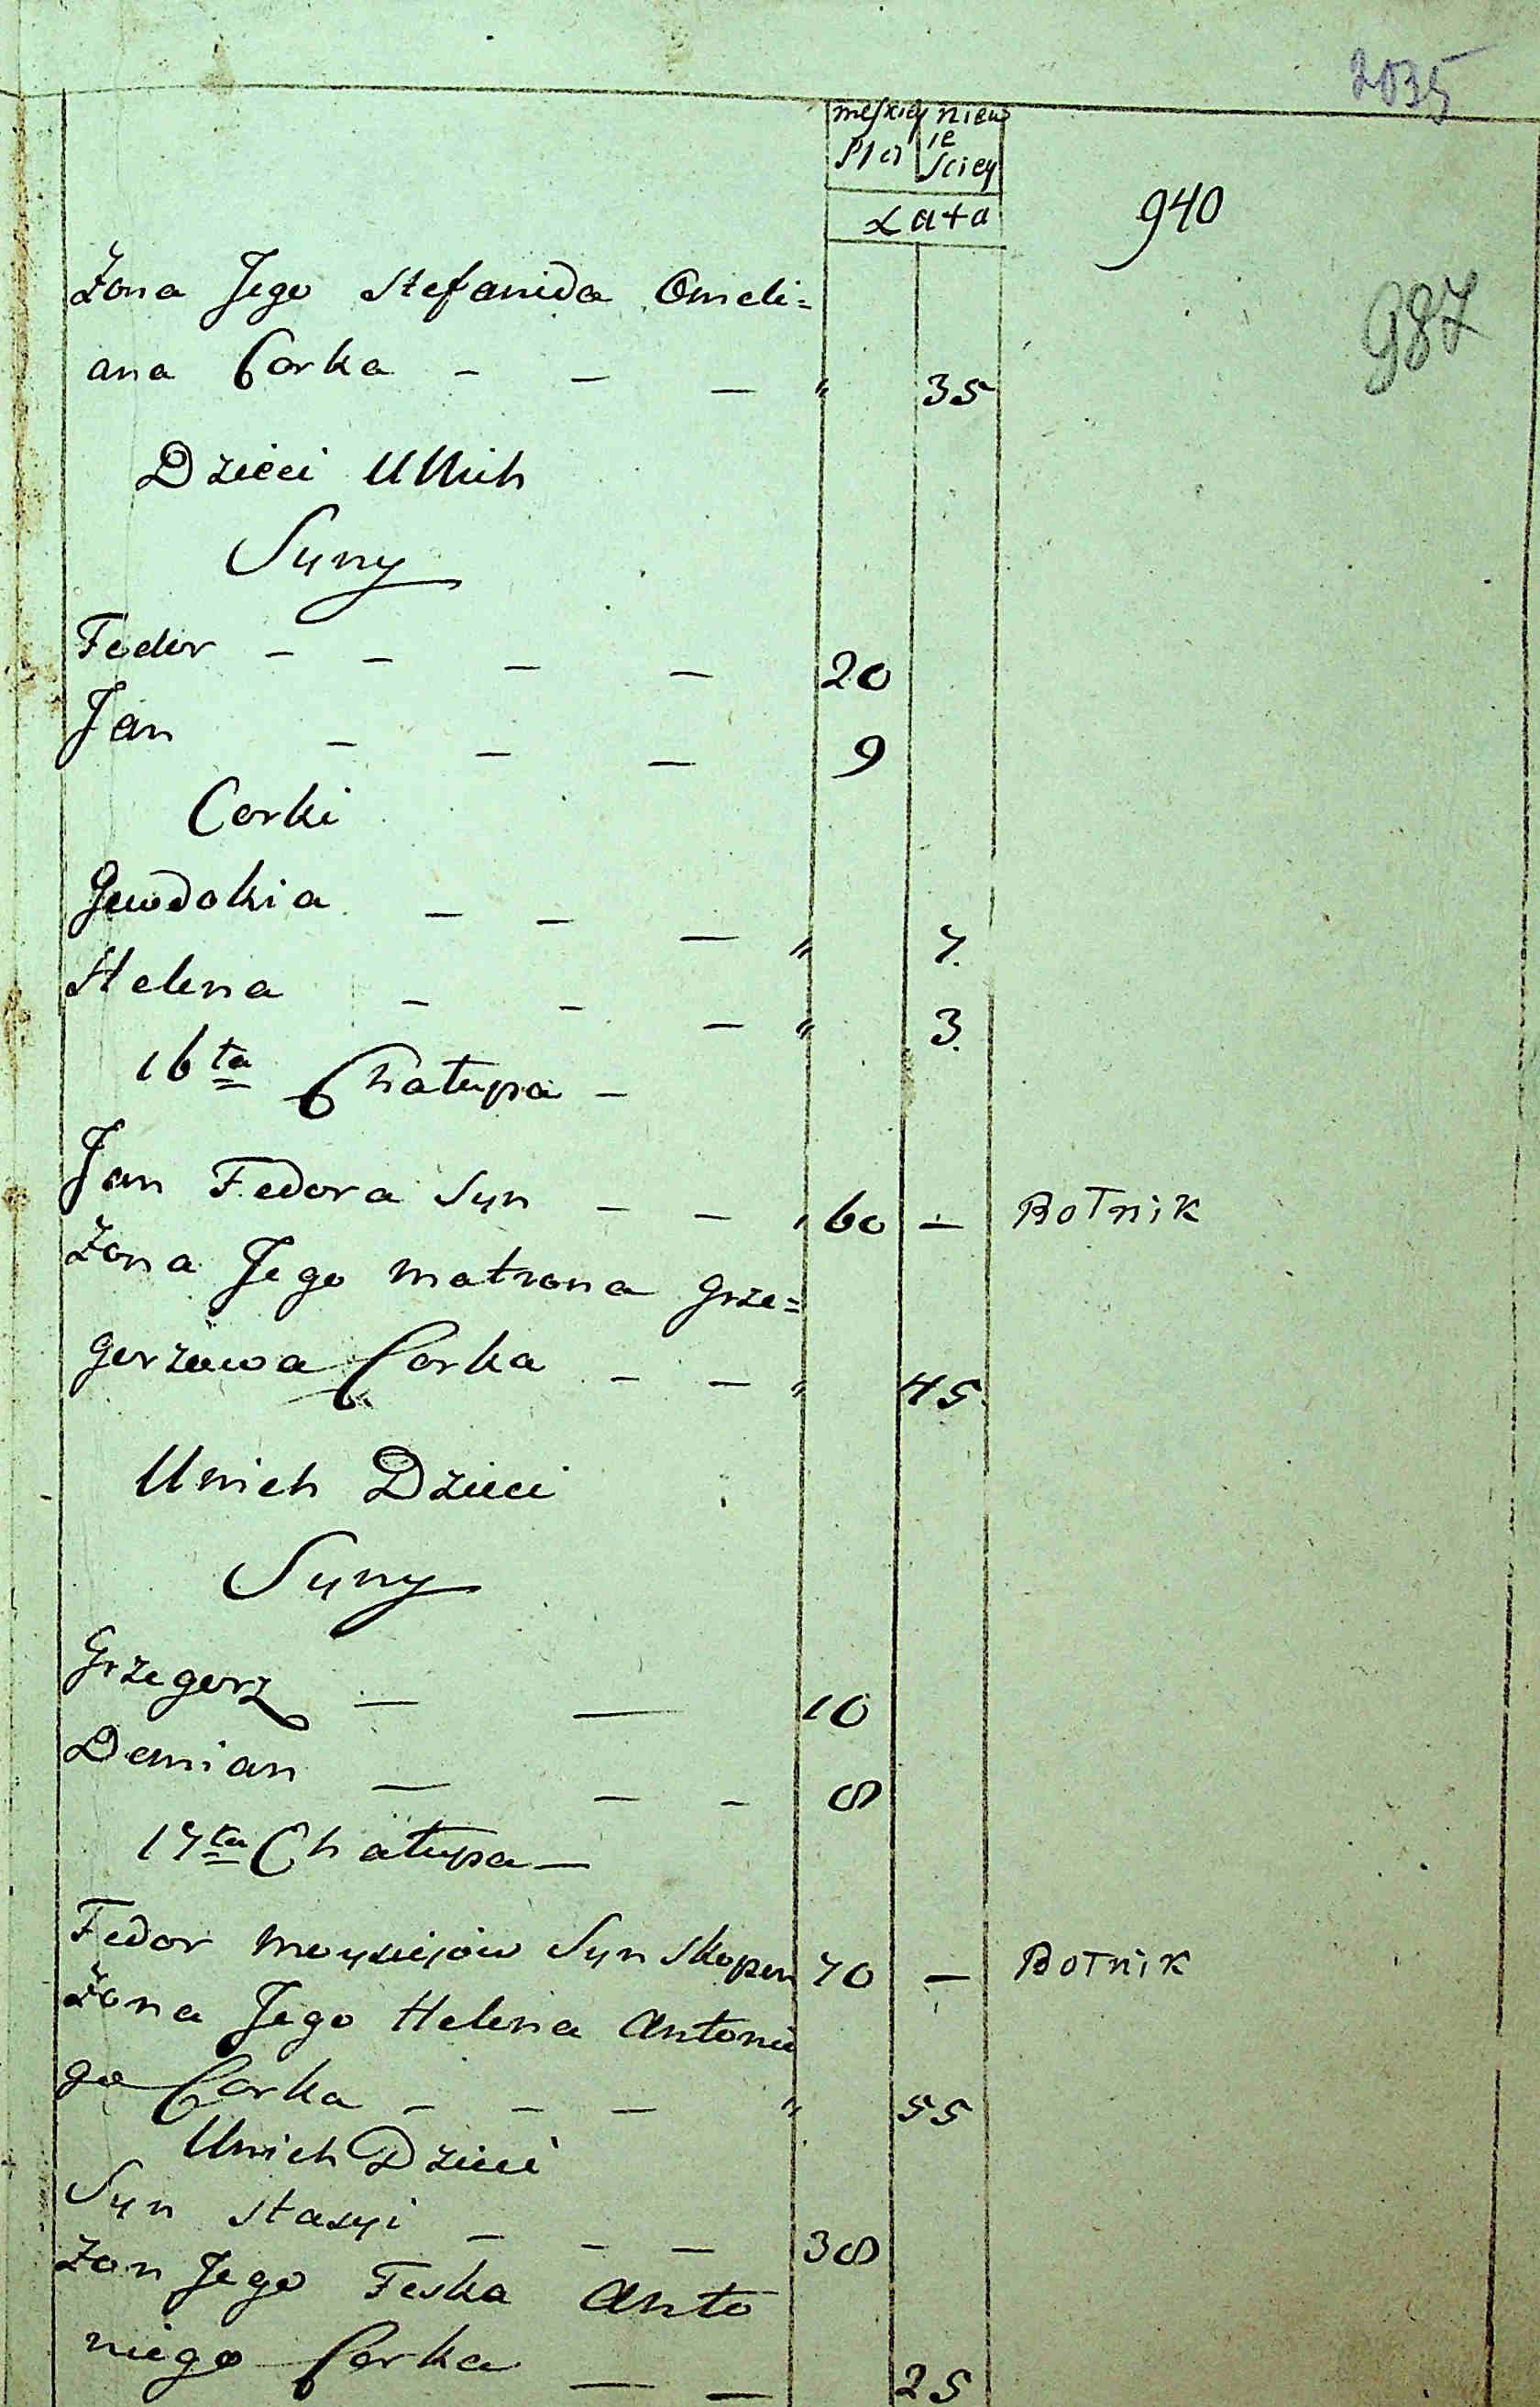 2035
męskiey niew
płci ie
sciey
Lata
940
987
Żona Jego Stefanida Omeli=
ana Corka - - - " 35
Dzieci U Nich
Syny
Fedor - - - - 20
Jan - - - 9
Corki
Jewdokia - - - " 7.
Helena - - - " 3.
16ta Chałupa -
Jan Fedora Syn - - , 60 - Rolnik
Żona Jego Matrona Grze=
gorzewa Corka - - " 45.
U nich Dzieci
Syny
Grzegorz - - 10
Demian - - - 8
17ta Chałupa -
Fedor Moysiejow Syn 70 - Rolnik
Żona Jego Helena Antonie
go Corka - - - " 55
U nich Dzieci
Syn Stasyi - - - 38
Zon Jego Feska Anto
niego Corka - - 25